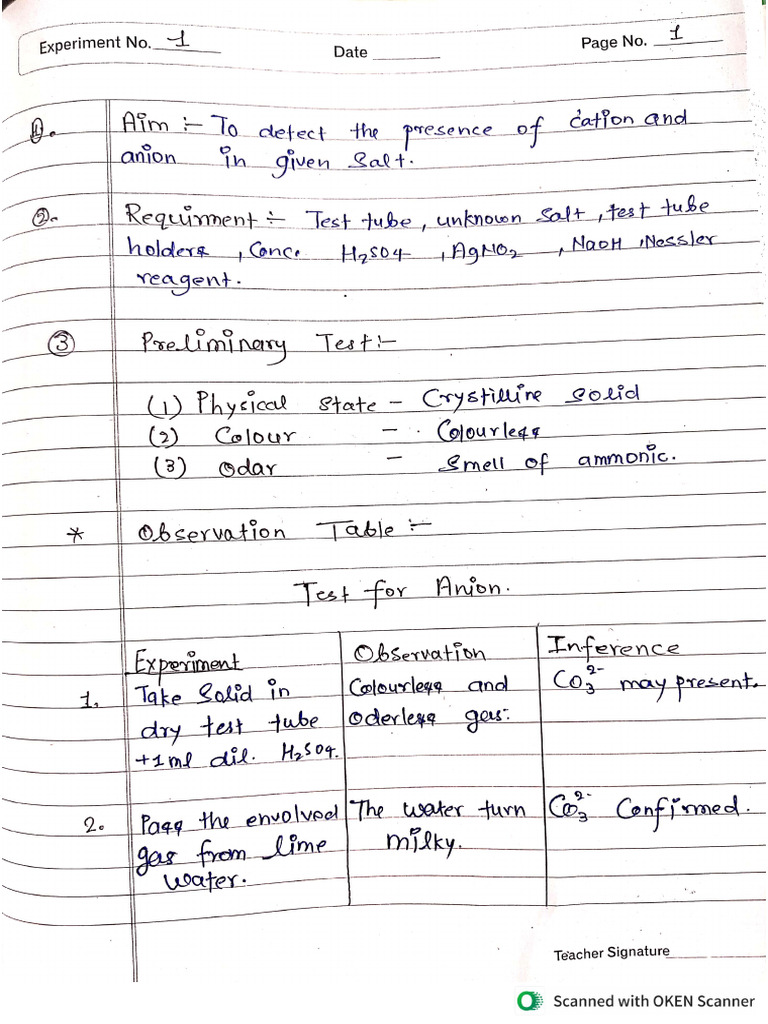 Experiment No. 1 Date Page No. 1
1. Aim :- To detect the presence of cation and
anion in given salt.
2. Requirment :- Test tube, unknown salt, test tube
holders, Conc. H2SO4, AgNO2, NaOH, Nessler
reagent.
3 Preliminary Test:-
(1) Physical state - Crystilline solid
(2) Colour - Colourless
(3) Odar - Smell of ammonic.
* Observation Table :-
Test for Anion.
Experiment Observation Inference
1. Take Solid in Colourless and CO3 2- may present.
dry test tube Oderless gas.
+1ml dil. H2SO4.
2. Pass the envolved The water turn CO3 2- Confirmed.
gas from lime milky.
water.
Teacher Signature
Scanned with OKEN Scanner